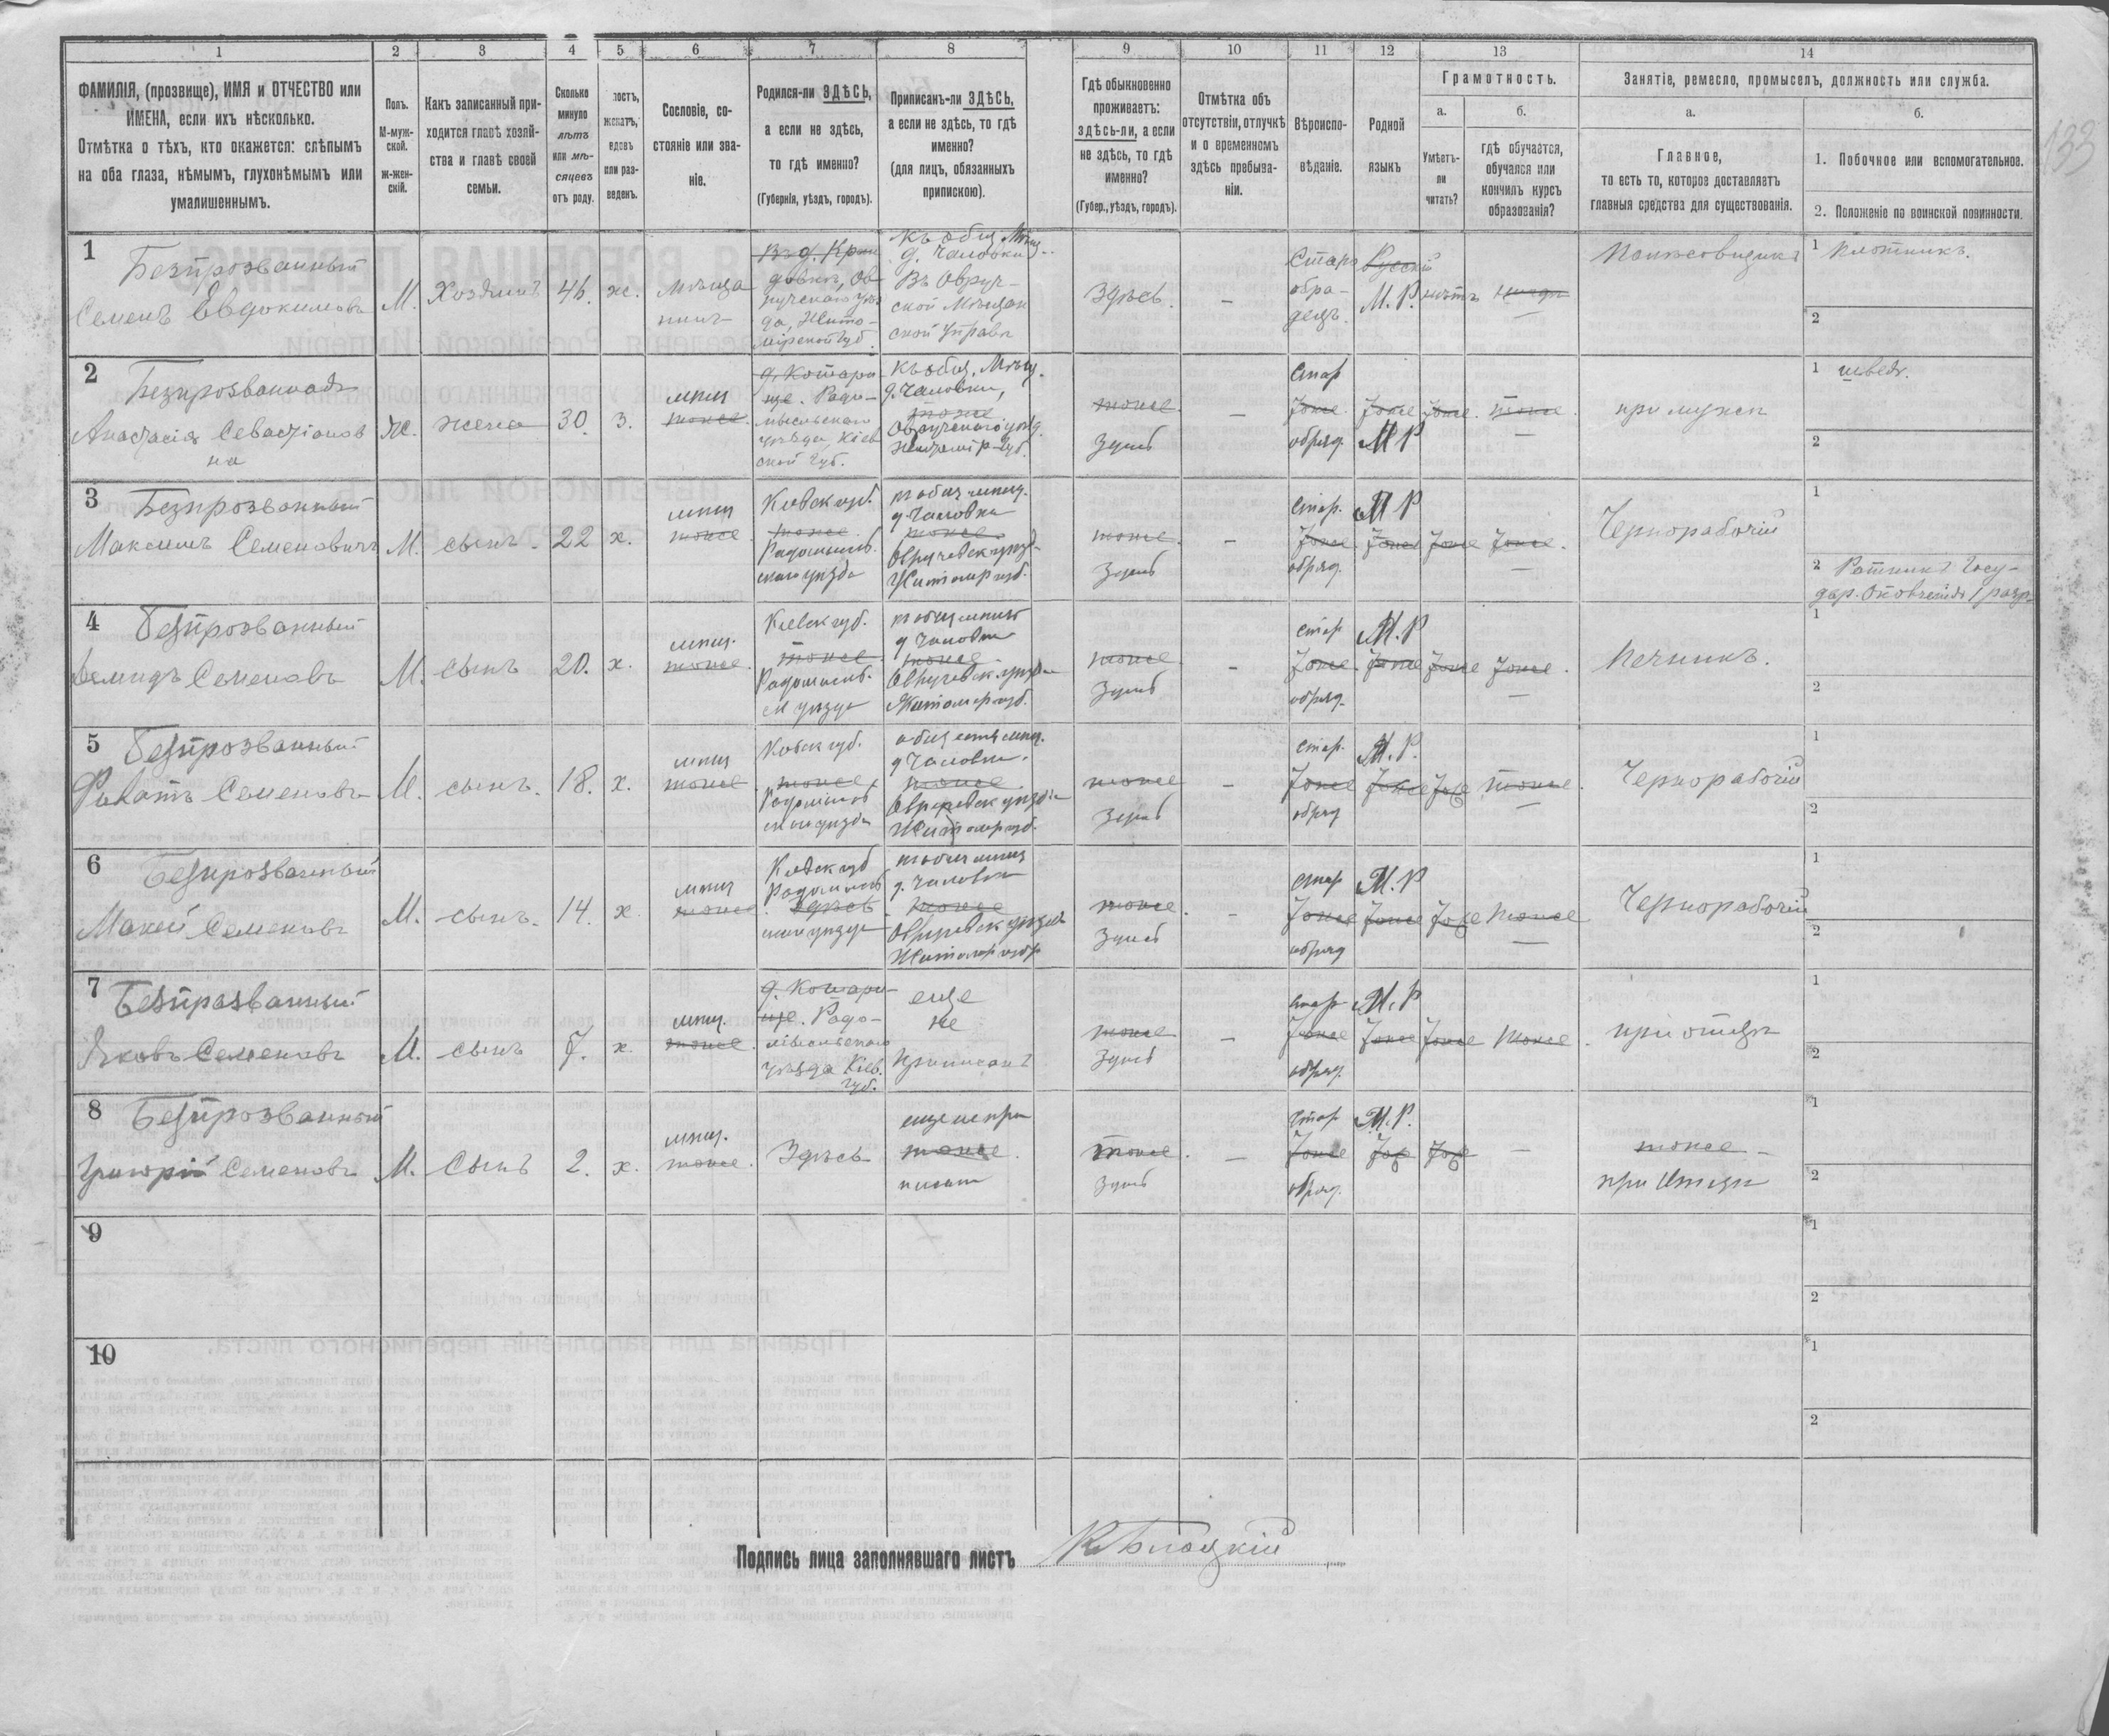 1 2 3 4 5 6 7 8 9 10 11 12 13 14
ФАМИЛІЯ, (прозвище), ИМЯ и ОТЧЕСТВО или
ИМЕНА, если ихъ нѣсколько.
Отмѣтка о тѣхъ, кто окажется: слѣпымъ
на оба глаза, нѣмымъ, глухонѣмымъ или
умалишеннымъ.
Полъ.
М-муж-
ской.
ж-жен-
скій.
Какъ записанный при-
ходится главѣ хозяй-
ства и главѣ своей
семьи.
Сколько
минуло
лѣтъ
или мѣ-
сяцевъ
отъ роду.
лостъ,
женатъ,
вдовъ
или раз-
веденъ.
Сословіе, со-
стояніе или зва-
ніе.
Родился-ли ЗДѢСЬ,
а если не здѣсь,
то гдѣ именно?
(Губернія, уѣздъ, городъ).
Приписанъ-ли ЗДѢСЬ,
а если не здѣсь, то гдѣ
именно?
(для лицъ, обязанныхъ
припискою).
Гдѣ обыкновенно
проживаетъ:
здѣсь-ли, а если
не здѣсь, то гдѣ
именно?
(Губер., уѣздъ, городъ).
Отмѣтка объ
отсутствіи, отлучкѣ
и о временномъ
здѣсь пребыва-
ніи.
Вѣроиспо-
вѣданіе.
Родной
языкъ
Грамотность.
а.
Умѣетъ-
ли
читать?
б.
гдѣ обучается,
обучался или
кончилъ курсъ
образованія?
Занятіе, ремесло, промыселъ, должность или служба.
а.
Главное,
то есть то, которое доставляетъ
главныя средства для существованія.
б.
1. Побочное или вспомогательное.
2. Положеніе по воинской повинности.
133
1
Безпрозванный
Семенъ Евдокимовъ
М.
Хозяинъ
46.
ж.
мѣща
нинъ
Въ д.
Ов-
ручскаго уѣз
да, Жито-
мірской губ.
Къ общ. Мѣщ.
д. Чаповки
Въ Овруч-
ской Мѣщан
ской Управѣ
Здѣсь.
–
Старо
обра-
децъ.
Русскій
М. Р.
нѣтъ
нигдѣ
–
1 Плотникъ.
2
2
Безпрозванная
Анастасія Севастіанов
на
Ж.
жена
30.
З.
мѣщ
тоже.
д. Котари
ще. Радо-
мысльскаго
уѣзда, Кіев
ской губ.
Къ общ. Мѣщ.
д. Чаповки,
тоже
Овручскаго уѣзд.
Житомір губ.
тоже.
Здѣсь
–
Стар
Тоже.
обряд.
Тоже
М Р
Тоже.
тоже.
–
при мужѣ
1 швея.
2
3
Безпрозванный
Максимъ Семеновичъ
М.
сынъ.
22
х.
мѣщ
тоже.
Кіевск губ.
тоже.
Радомысль
скаго уѣзда
д Чаповки
тоже.
Овручевск уѣзд.
Житомир губ.
тоже.
Здѣсь
–
Стар.
Тоже.
обряд.
М Р
Тоже
Тоже
Тоже.
–
Чернорабочій
1
2 Ратникъ Госу-
дар. Ополченія 1 разр
4
Безпрозванный
Демидъ Семеновъ
М.
сынъ
20.
х.
мѣщ.
тоже.
Кіевск губ.
тоже
д Чаповки
тоже.
Житомир губ.
тоже
Здѣсь
–
Стар
Тоже.
обряд.
М. Р
Тоже
Тоже
Тоже.
–
Печникъ.
1
2
5
Безпрозванный
Фокатъ Семеновъ
М.
сынъ.
18.
х.
мѣщ
тоже
Кіевск губ.
тоже
д Чаповки.
тоже
Житомир губ.
тоже
Здѣсь
–
Стар.
Тоже
обряд
М. Р.
Тоже
Тоже
тоже.
–
Чернорабочій
1
2
6
Безпрозванный
Мокей Семеновъ
М.
сынъ.
14.
х.
мѣщ
тоже.
Кіевск губ
Здѣсь
д. Чаповки
тоже
Житомир губ
тоже.
Здѣсь
–
Стар
Тоже
обряд
М. Р
Тоже
Тоже
тоже
–
Чернорабочій
1
2
7
Безпрозванный
Яковъ Семеновъ
М.
сынъ
7.
х.
мѣщ.
тоже.
д. Котари
ще. Радо-
мысльскаго
уѣзда Кіев.
губ.
еще
не
приписанъ
тоже
Здѣсь
–
Стар
Тоже
обряд.
М. Р
Тоже
Тоже
тоже.
при отцѣ
1
2
8
Безпрозванный
Григорій Семеновъ
М.
Сынъ
2.
х.
мѣщ.
тоже.
Здѣсь
еще не при
тоже.
писан
тоже.
Здѣсь
–
Стар
Тоже
обряд.
М. Р.
Тоже
Тоже
–
тоже –
при Отцѣ
1
2
9
1
2
10
1
2
Подпись лица заполнявшаго листъ